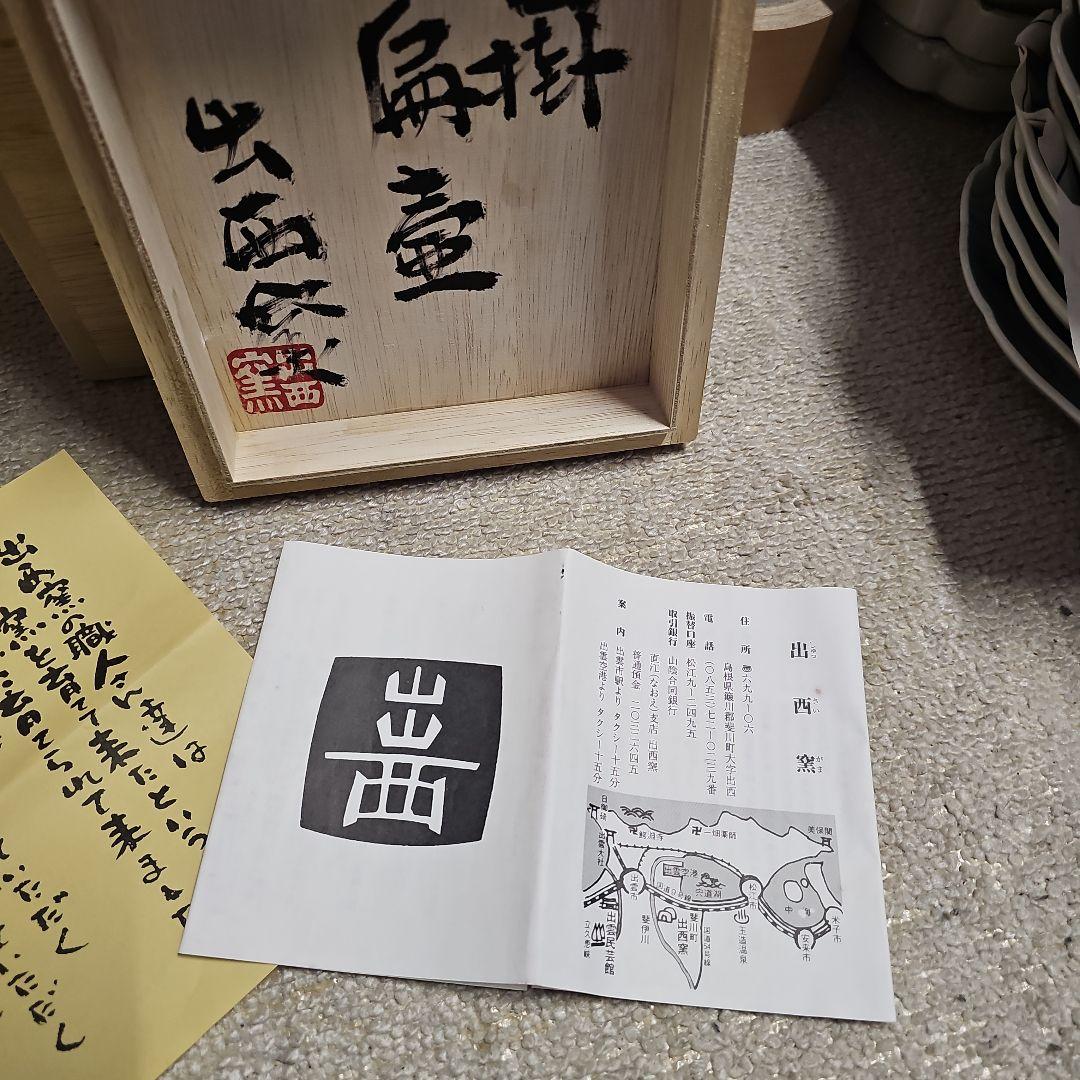 掛
扁
壷
出西窯
出西窯
出西窯の職人さん達は
窯を育てて来たという
育てられて来ました
ていただく
出西
出西窯
しゅっさいがま
住所 〒六九九ー〇六
島根県簸川郡斐川町大字出西
電話 (〇八五三)七二ー〇二三九番
振替口座 松江九ー二四九五
取引銀行 山陰合同銀行
直江(なおえ)支店 出西窯
普通預金 二〇三二六四五
案内 出雲市駅より タクシー十五分
出雲空港より タクシー十五分
日御碕
鰐淵寺
一畑薬師
美保関
出雲大社
出雲空港
宍道湖
国道9号線
出雲市
松江市
中海
米子市
安来市
玉造温泉
国道54号線
斐川町
出西窯
斐伊川
出雲民芸館
立久恵峡